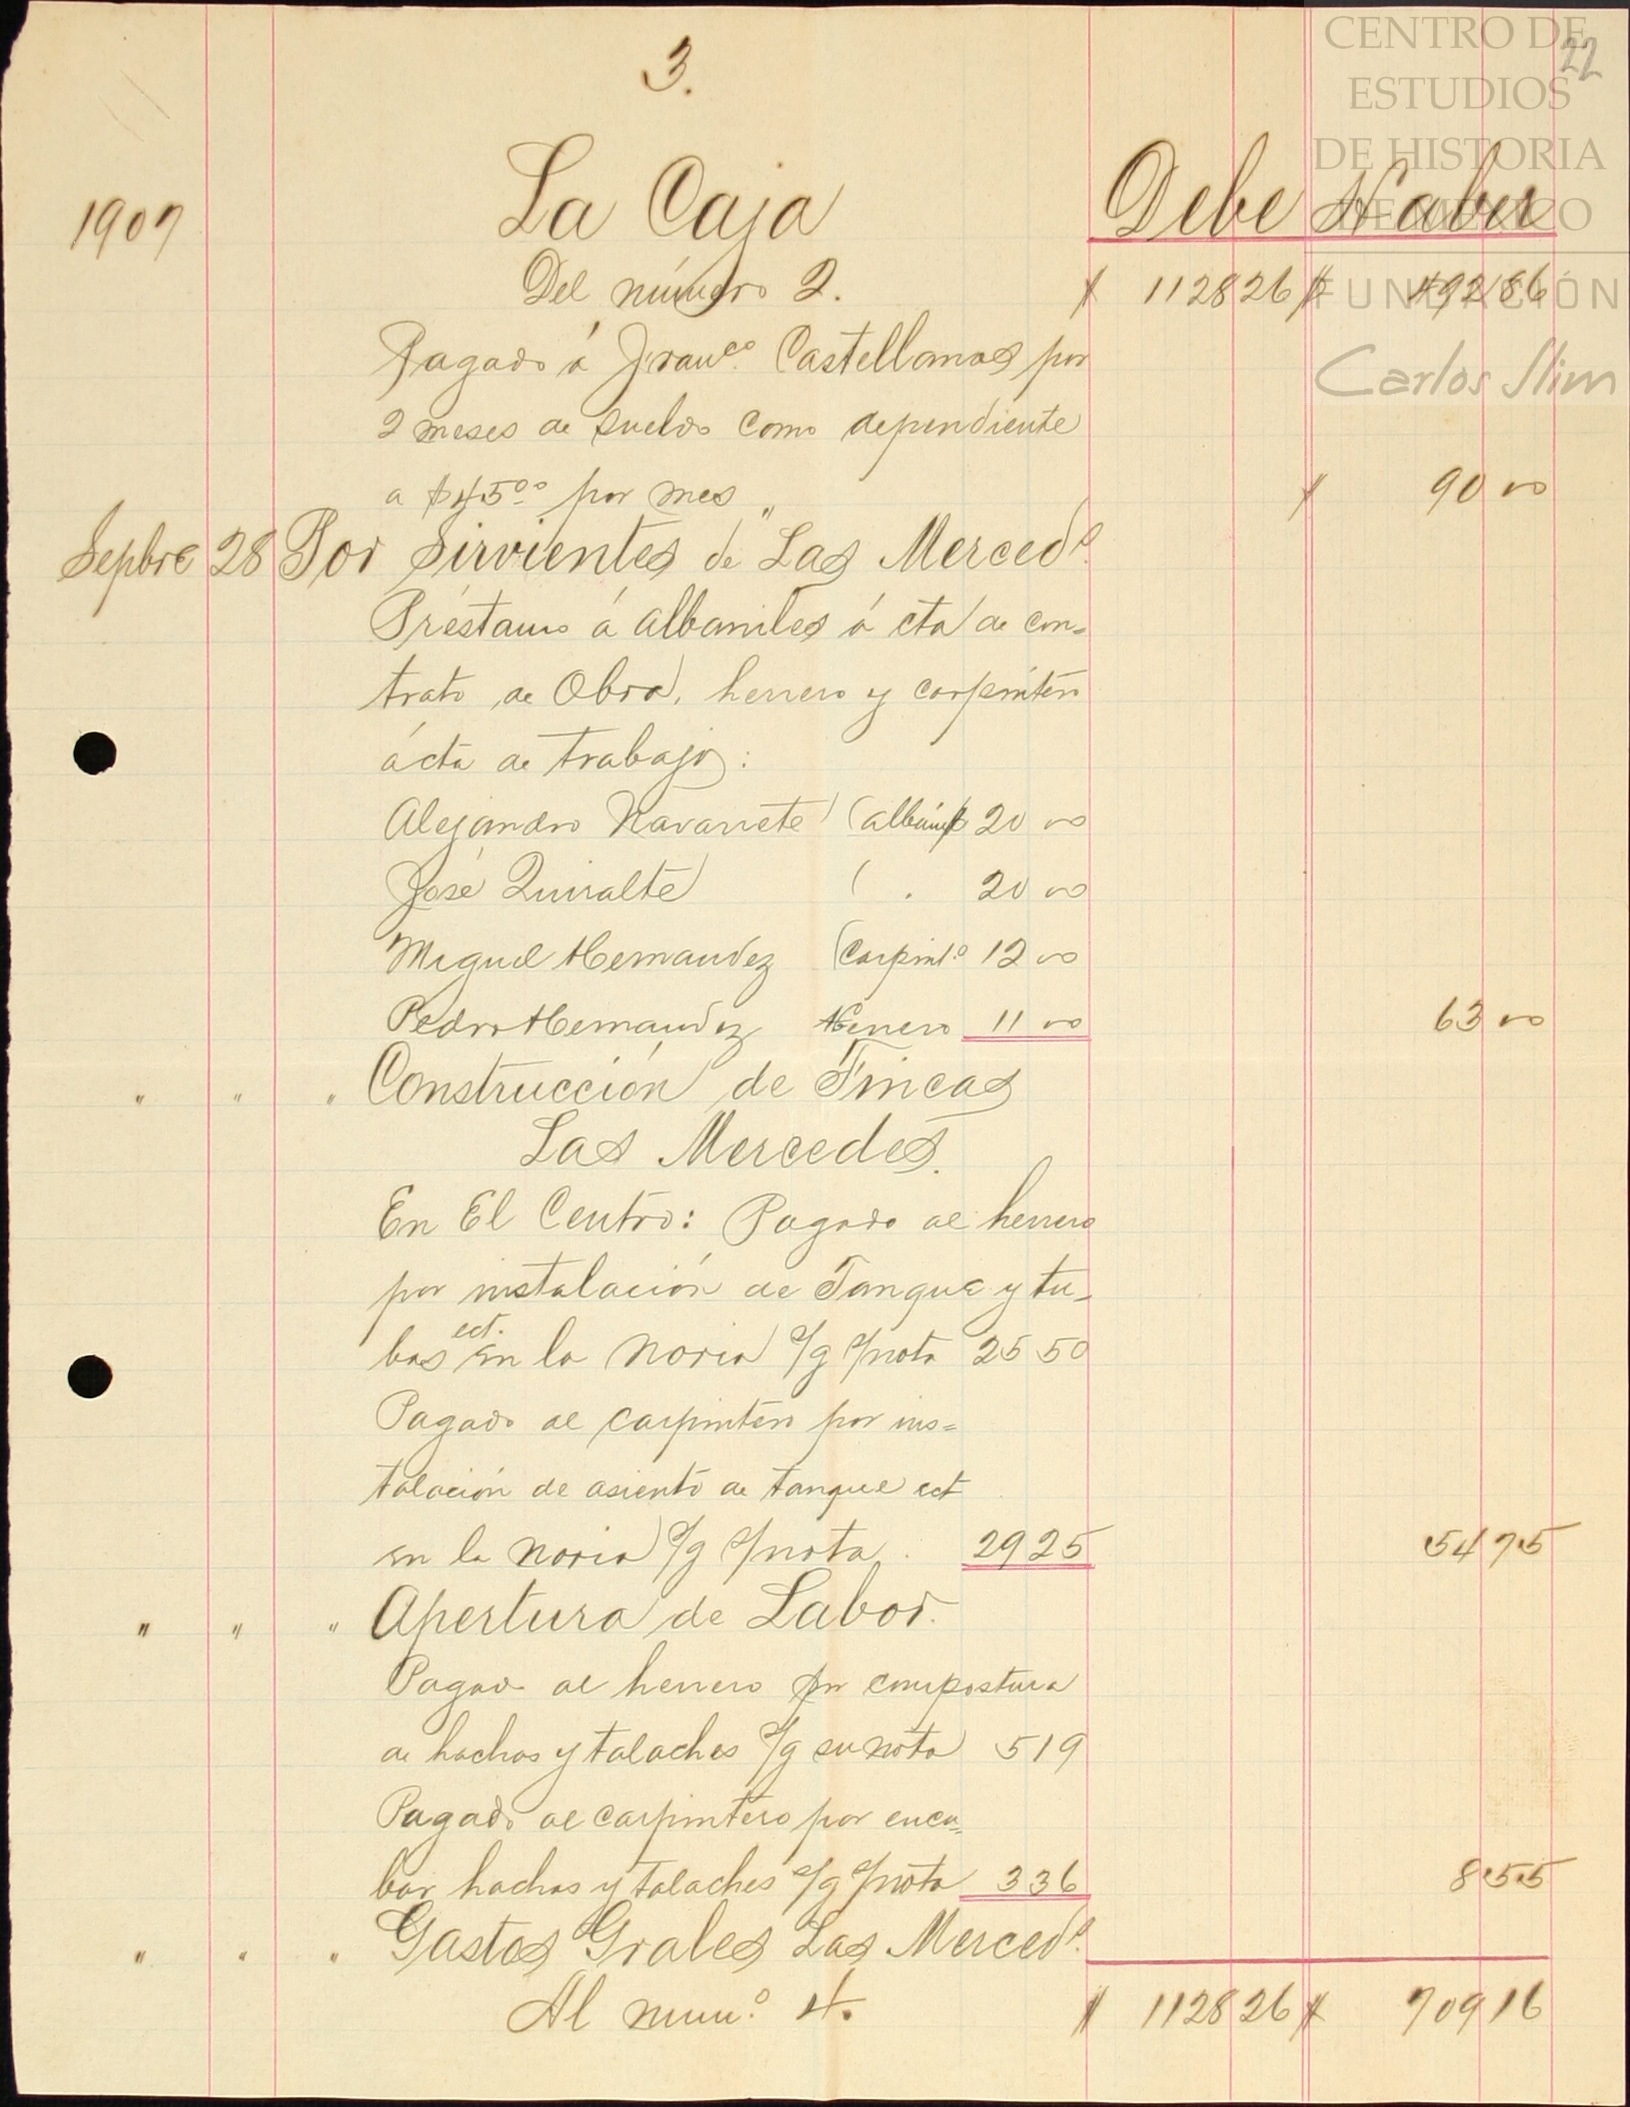 3.
22
CENTRO DE
ESTUDIOS
DE HISTORIA
DE MÉXICO
FUNDACIÓN
Carlos Slim
1907 La Caja Debe Haber
Del número 2. $ 1128 26 $ 492 86
Pagado á Franco. Castellanos por
2 meses de sueldo como dependiente
a $45oo por mes $ 90 00
Sepbre 28 Por Sirvientes de "Las Merceds.
Préstamo á albaniles á cta de con=
trato de Obra, herrero y carpintero
ácta de trabajo:
Alejandro Navarrete (albañil 20 00
José Quiralte ( . 20 00
Miguel Hernandez (Carpinto. 12 00
Pedro Hernández Herrero 11 00 63 00
" " " Construcción de Fincas
Las Mercedes.
En El Centro: Pagado al herrero
por instalación de Tanque y tu-
bos ect. en la noria s/g s/nota 25 50
Pagado al carpintero por ins=
talación de asiento de tanque ect
en la noria s/g s/nota . 29 25 54 75
" " " Apertura de Labor.
Pagado al herrero por compostura
de hachas y talaches s/g su nota 5 19
Pagado al carpintero por enca=
bar hachas y talaches s/g s/nota 3 36 8 55
" " " Gastos Grales Las Merceds.
Al numo. 4. $ 1128 26 $ 709 16